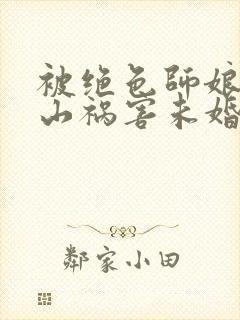 被绝色师娘
山祸害未婚
鄰家小田